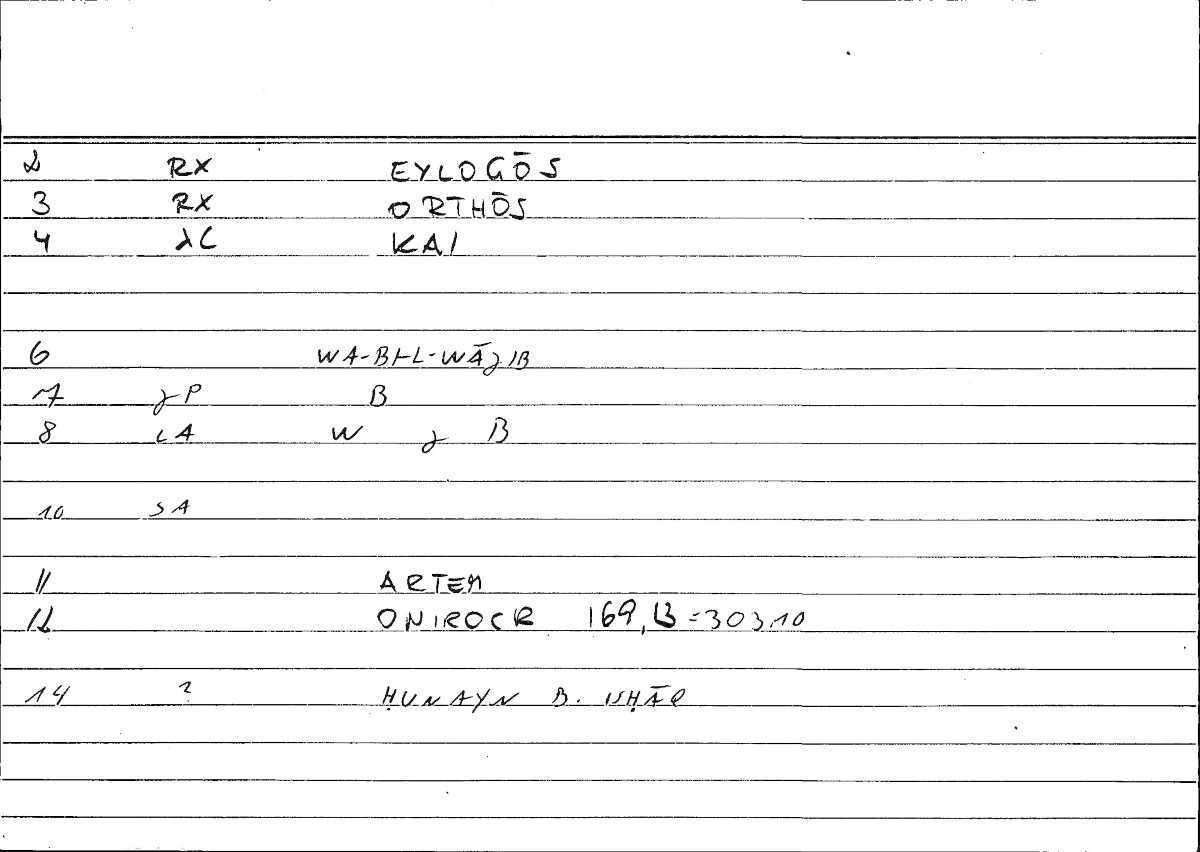 2 RX EYLOGŌS
3 RX ORTHŌS
4 λC KAI
6 WA-BI-L-WĀJIB
7 JP B
8 LA W J B
10 SA
11 ARTEM
12 ONIROCR 169,13=303.10
14 ? ḤUNAYN B. ISḤĀQ